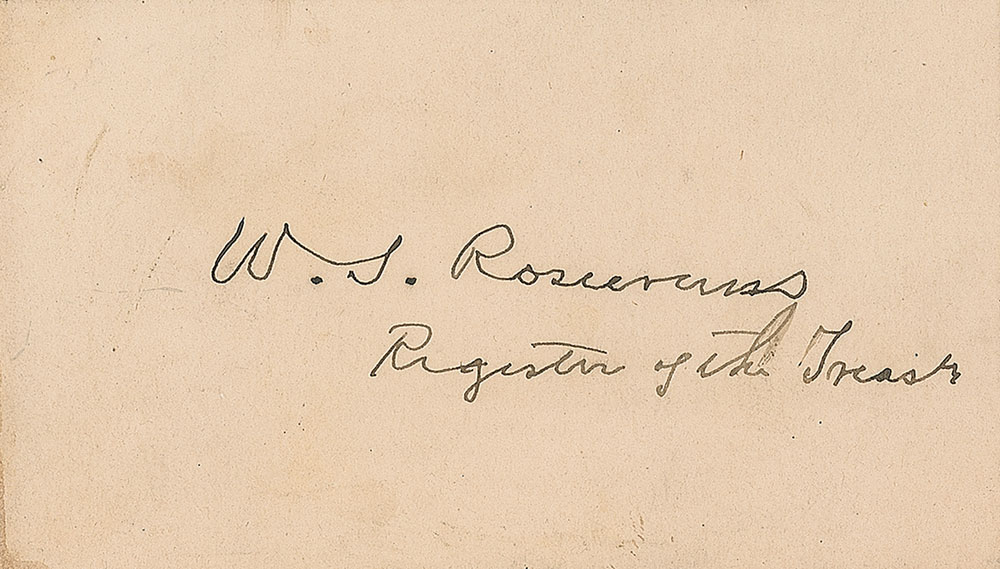 W. S. Rosecrans
Register of the Treasr